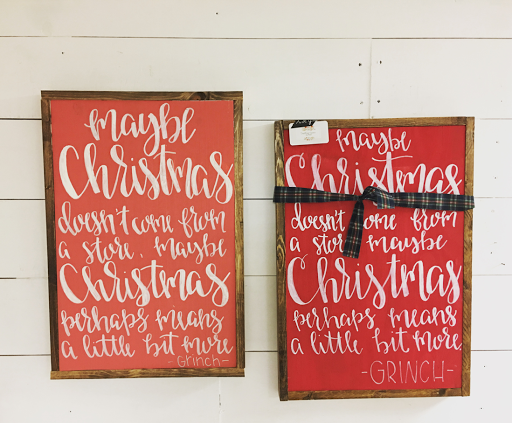 maybe
Christmas
doesn't come from
a store, maybe
Christmas
perhaps means
a little bit more
- Grinch -
maybe
Christmas
doesn't come from
a store maybe
Christmas
perhaps means
a little bit more
-GRINCH-